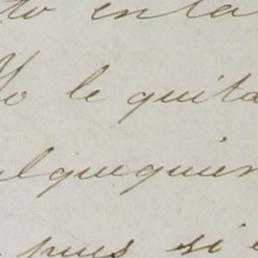 to en la
Yo le quita
lquequier
pues si